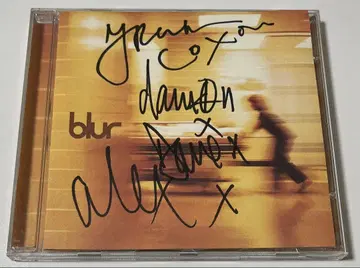 Graham
Coxon
damon
blur
Dave x
alex x